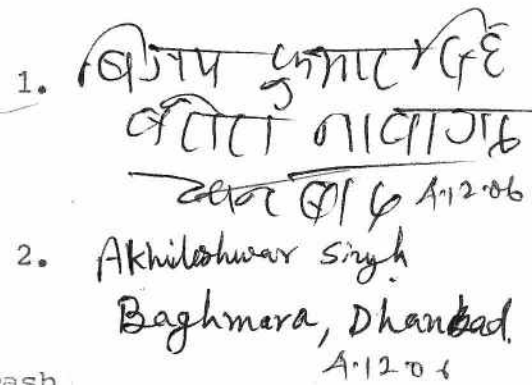 1. बिजय कुमार सिंह
नावागढ़
धनबाद 4.12.06
2. Akhileshwar Singh
Baghmara, Dhanbad.
4.12.06
ash